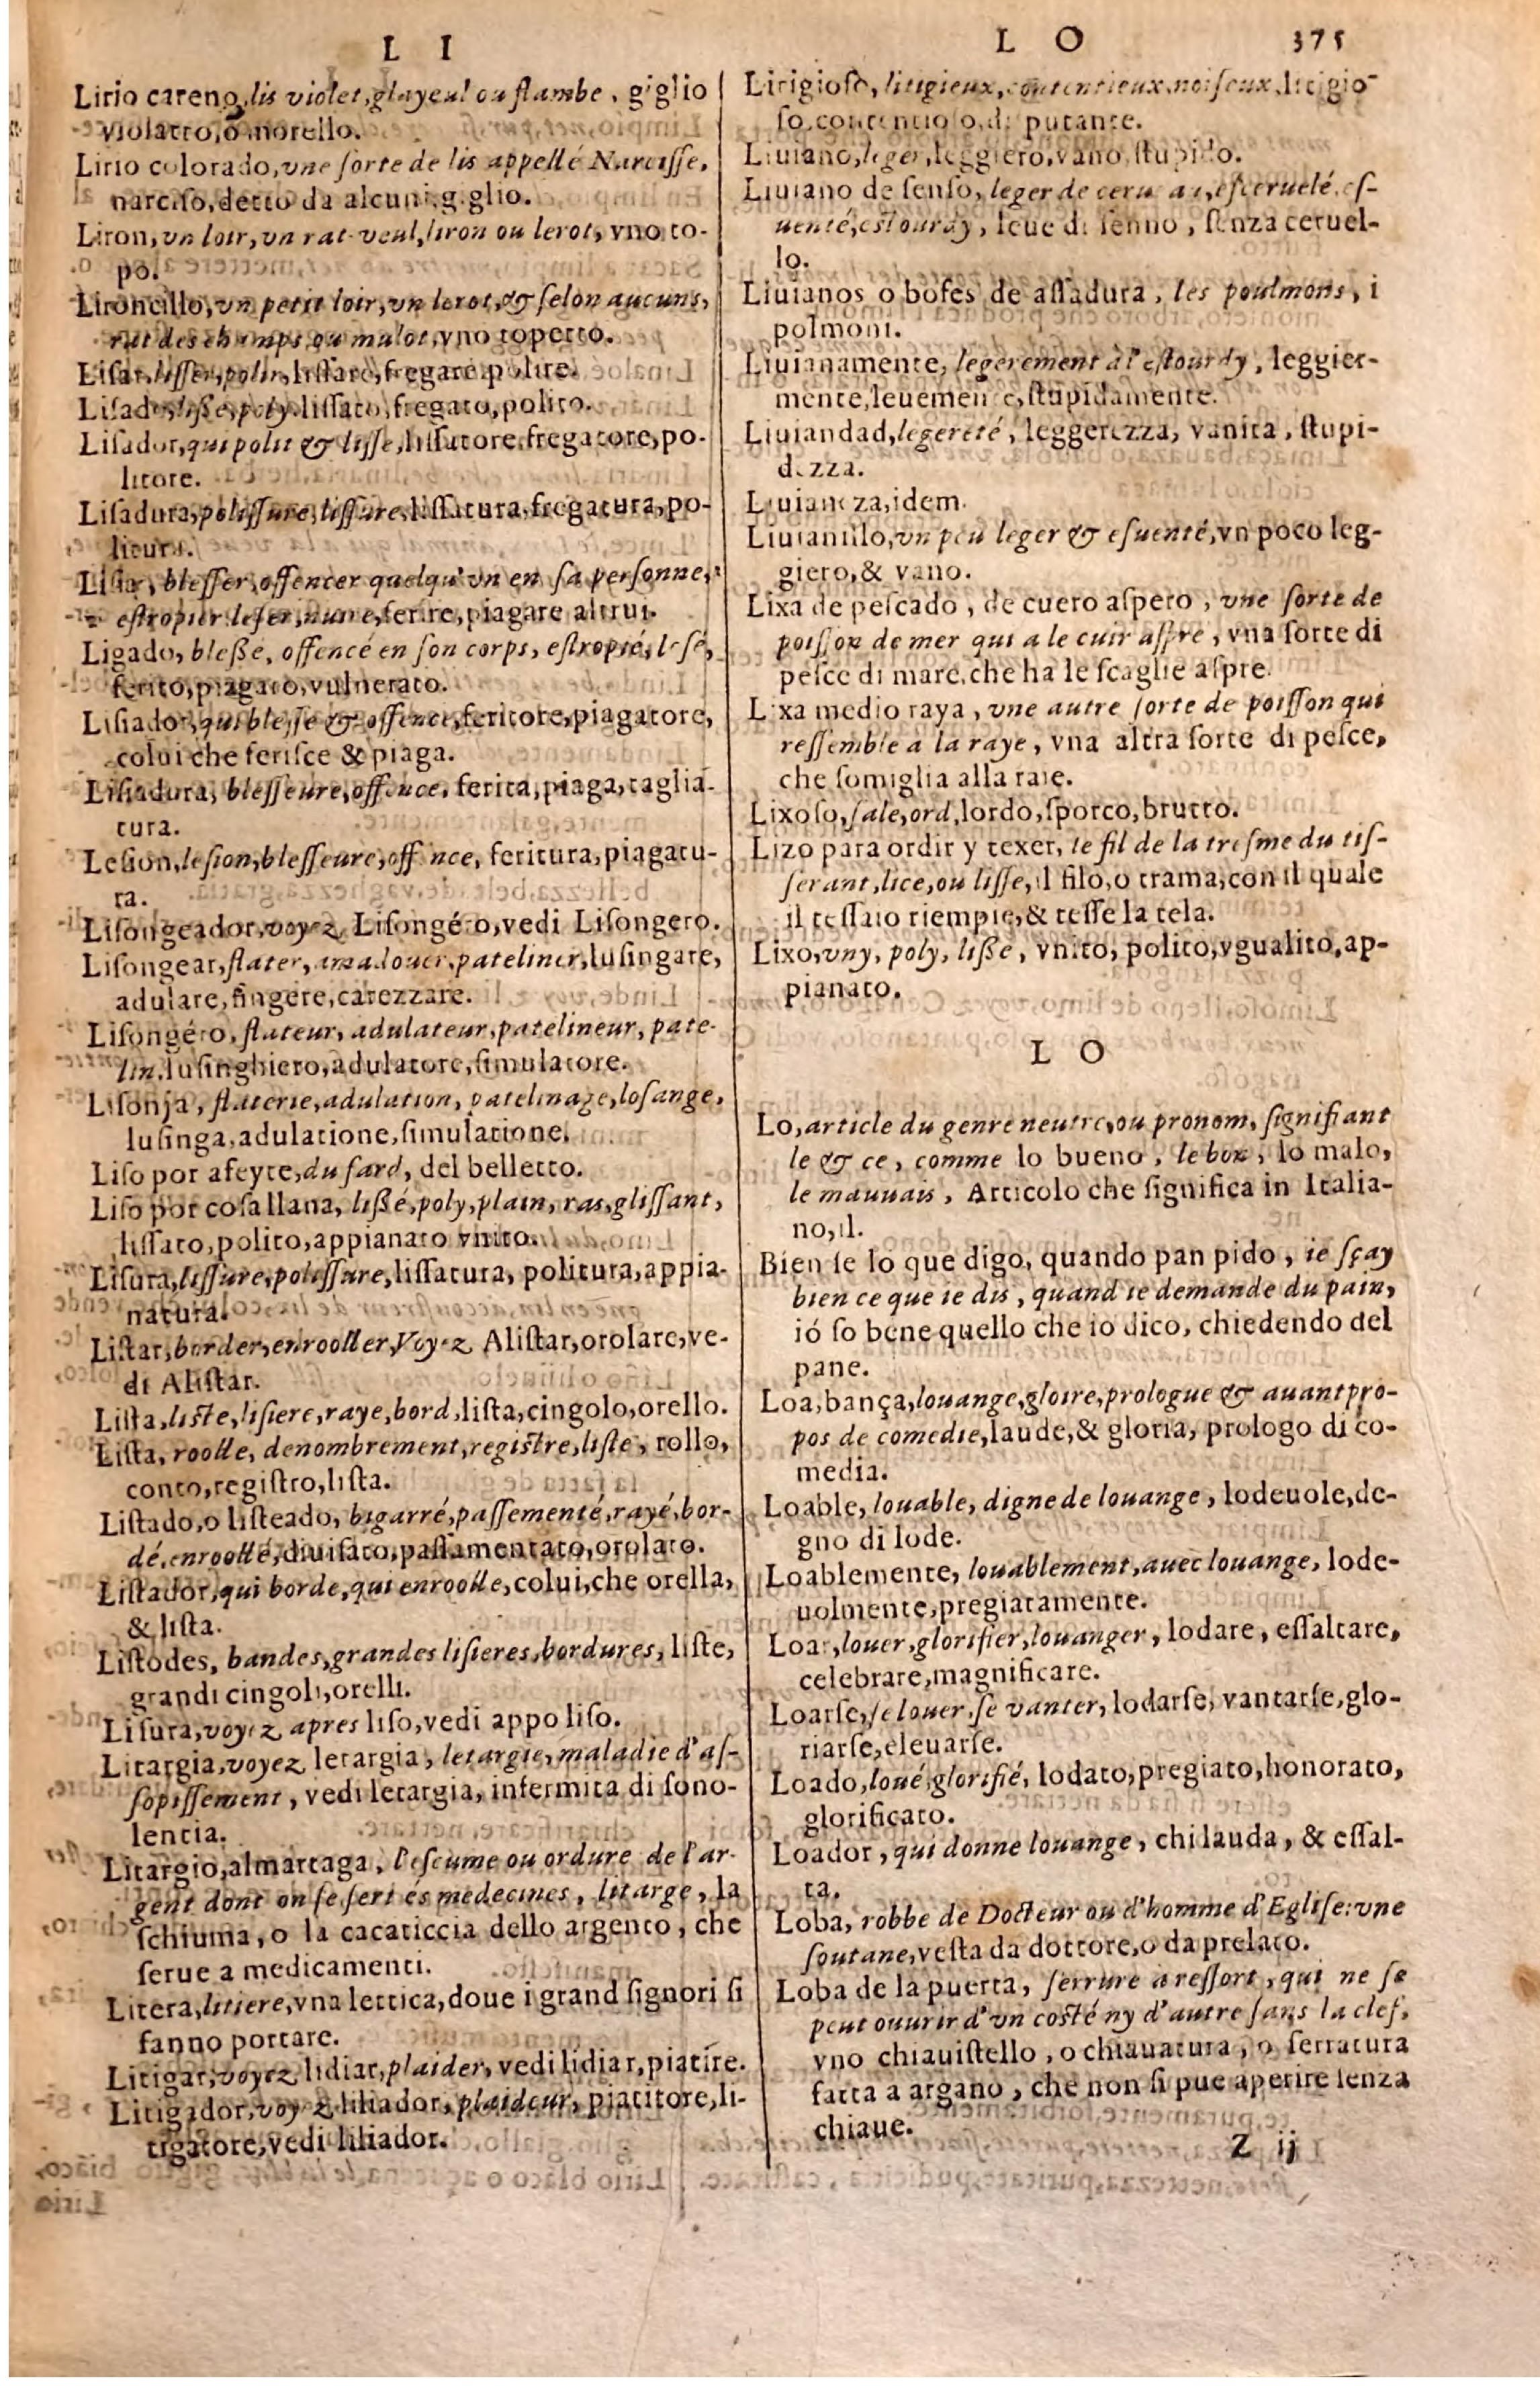 L I
Lirio careno, lis violet, glayeul ou flambe, giglio
violatto, o morello.
Lirio colorado, vne ſorte de lis appellé Narciſſe,
narciſo, detto da alcuni, giglio.
Liron, vn loir, vn rat-veul, liron ou lerot, vno to-
po.
Lironcillo, vn petit loir, vn lerot, & ſelon aucuns,
rat des champs, ou mulot, vno topetto.
Liſar, liſſer, polir, liſſare, fregare, polire.
Liſado, liße, poly, liſſato, fregato, polito.
Liſador, qui polit & liſſe, liſſatore, fregatore, po-
litore.
Liſadura, poliſſure, liſſure, liſſatura, fregatura, po-
litura.
Liſiar, bleſſer, offencer quelqu'vn en ſa perſonne,
eſtropier, leſer, nuire, ferire, piagare altrui.
Ligado, bleße, offencé en ſon corps, eſtropié, leſé,
ferito, piagato, vulnerato.
Liſiador, qui bleſſe & offence, feritore, piagatore,
colui che feriſce & piaga.
Liſiadura, bleſſeure, offence, ferita, piaga, taglia-
tura.
Leſion, leſion, bleſſeure, offence, feritura, piagatu-
ra.
Liſongeador, voyez Liſongéro, vedi Liſongero.
Liſongear, flater, amadouer, pateliner, luſingare,
adulare, fingere, carezzare.
Liſongéro, flateur, adulateur, patelineur, pate-
lin, luſinghiero, adulatore, ſimulatore.
Liſonja, flaterie, adulation, patelinage, loſange,
luſinga, adulatione, ſimulatione.
Liſo por afeyte, du fard, del belletto.
Liſo por coſa llana, lißé, poly, plain, ras, gliſſant,
liſſato, polito, appianato vnito.
Liſura, liſſure, poliſſure, liſſatura, politura, appia-
natura.
Liſtar, border, enrooller, Voyez Aliſtar, orolare, ve-
di Aliſtar.
Liſta, liſte, liſiere, raye, bord, liſta, cingolo, orello.
Liſta, roolle, denombrement, regiſtre, liſte, rollo,
conto, regiſtro, liſta.
Liſtado, o liſteado, bigarré, paſſementé, rayé, bor-
dé, enroollé, diuiſato, paſſamentato, orolato.
Liſtador, qui borde, qui enroolle, colui, che orella,
& liſta.
Liſtodes, bandes, grandes liſieres, bordures, liſte,
grandi cingoli, orelli.
Liſura, voyez apres liſo, vedi appo liſo.
Litargia, voyez letargia, letargie, maladie d'aſ-
ſopiſſement, vedi letargia, infermita di ſono-
lentia.
Litargio, almartaga, l'eſcume ou ordure de l'ar-
gent dont on ſe ſert és medecines, litarge, la
ſchiuma, o la cacaticcia dello argento, che
ſerue a medicamenti.
Litera, litiere, vna lettica, doue i grand ſignori ſi
fanno portare.
Litigar, voyez lidiar, plaider, vedi lidiar, piatire.
Litigador, voyez liliador, plaideur, piatitore, li-
tigatore, vedi liliador.
L O 375
Litigioſo, litigieux, contentieux, noiſeux, litigio-
ſo, contentioſo, diſputante.
Liuiano, leger, leggiero, vano, ſtupido.
Liuiano de ſenſo, leger de cerueau, eſceruelé, eſ-
uenté, eſtourdy, leue di ſenno, ſenza ceruel-
lo.
Liuianos o bofes de aſſadura, les poulmons, i
polmoni.
Liuianamente, legerement à l'eſtourdy, leggier-
mente, leuemente, ſtupidamente.
Liuiandad, legereté, leggerezza, vanita, ſtupi-
dezza.
Liuianeza, idem.
Liuianillo, vn peu leger & eſuenté, vn poco leg-
giero, & vano.
Lixa de peſcado, de cuero aſpero, vne ſorte de
poiſſon de mer qui a le cuir aſpre, vna ſorte di
peſce di mare, che ha le ſcaglie aſpre.
Lixa medio raya, vne autre ſorte de poiſſon qui
reſſemble a la raye, vna altra ſorte di peſce,
che ſomiglia alla raie.
Lixoſo, ſale, ord, lordo, ſporco, brutto.
Lizo para ordir y texer, le fil de la treſme du tiſ-
ſerant, lice, ou liſſe, il filo, o trama, con il quale
il teſſaio riempie, & teſſe la tela.
Lixo, vny, poly, liße, vnito, polito, vgualito, ap-
pianato.
L O
Lo, article du genre neutre, ou pronom, ſignifiant
le & ce, comme lo bueno, le bon, lo malo,
le mauuais, Articolo che ſignifica in Italia-
no, il.
Bien ſe lo que digo, quando pan pido, ie ſçay
bien ce que ie dis, quand ie demande du pain,
ió ſo bene quello che io dico, chiedendo del
pane.
Loa, bança, louange, gloire, prologue & auantpro-
pos de comedie, laude, & gloria, prologo di co-
media.
Loable, louable, digne de louange, lodeuole, de-
gno di lode.
Loablemente, louablement, auec louange, lode-
uolmente, pregiatamente.
Loar, louer, glorifier, louanger, lodare, eſſaltare,
celebrare, magnificare.
Loarſe, ſe louer, ſe vanter, lodarſe, vantarſe, glo-
riarſe, eleuarſe.
Loado, loué, glorifié, lodato, pregiato, honorato,
glorificato.
Loador, qui donne louange, chi lauda, & eſſal-
ta.
Loba, robbe de Docteur ou d'homme d'Egliſe: vne
ſoutane, veſta da dottore, o da prelato.
Loba de la puerta, ſerrure a reſſort, qui ne ſe
peut ouurir d'vn coſté ny d'autre ſans la clef,
vno chiauiſtello, o chiauatura, o ſerratura
fatta a argano, che non ſi pue aperire ſenza
chiaue.
Z ij